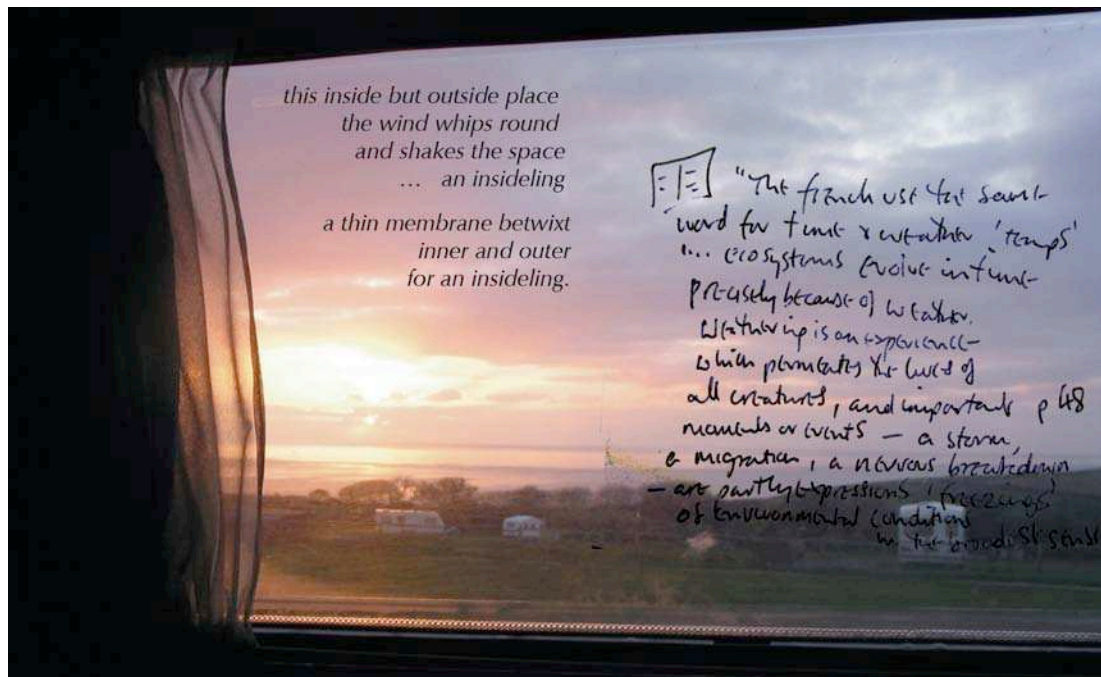 this inside but outside place
the wind whips round
and shakes the space
... an insideling
a thin membrane betwixt
inner and outer
for an insideling.
"The french use the same
word for time & weather 'temps'
"... ecosystems evolve in time
precisely because of weather.
Weathering is an experience
which permeates the lives of
all creatures, and important p 48
moments or events – a storm,
a migration, a nervous breakdown
– are partly expressions 'freezings'
of environmental conditions
in the broadest sense